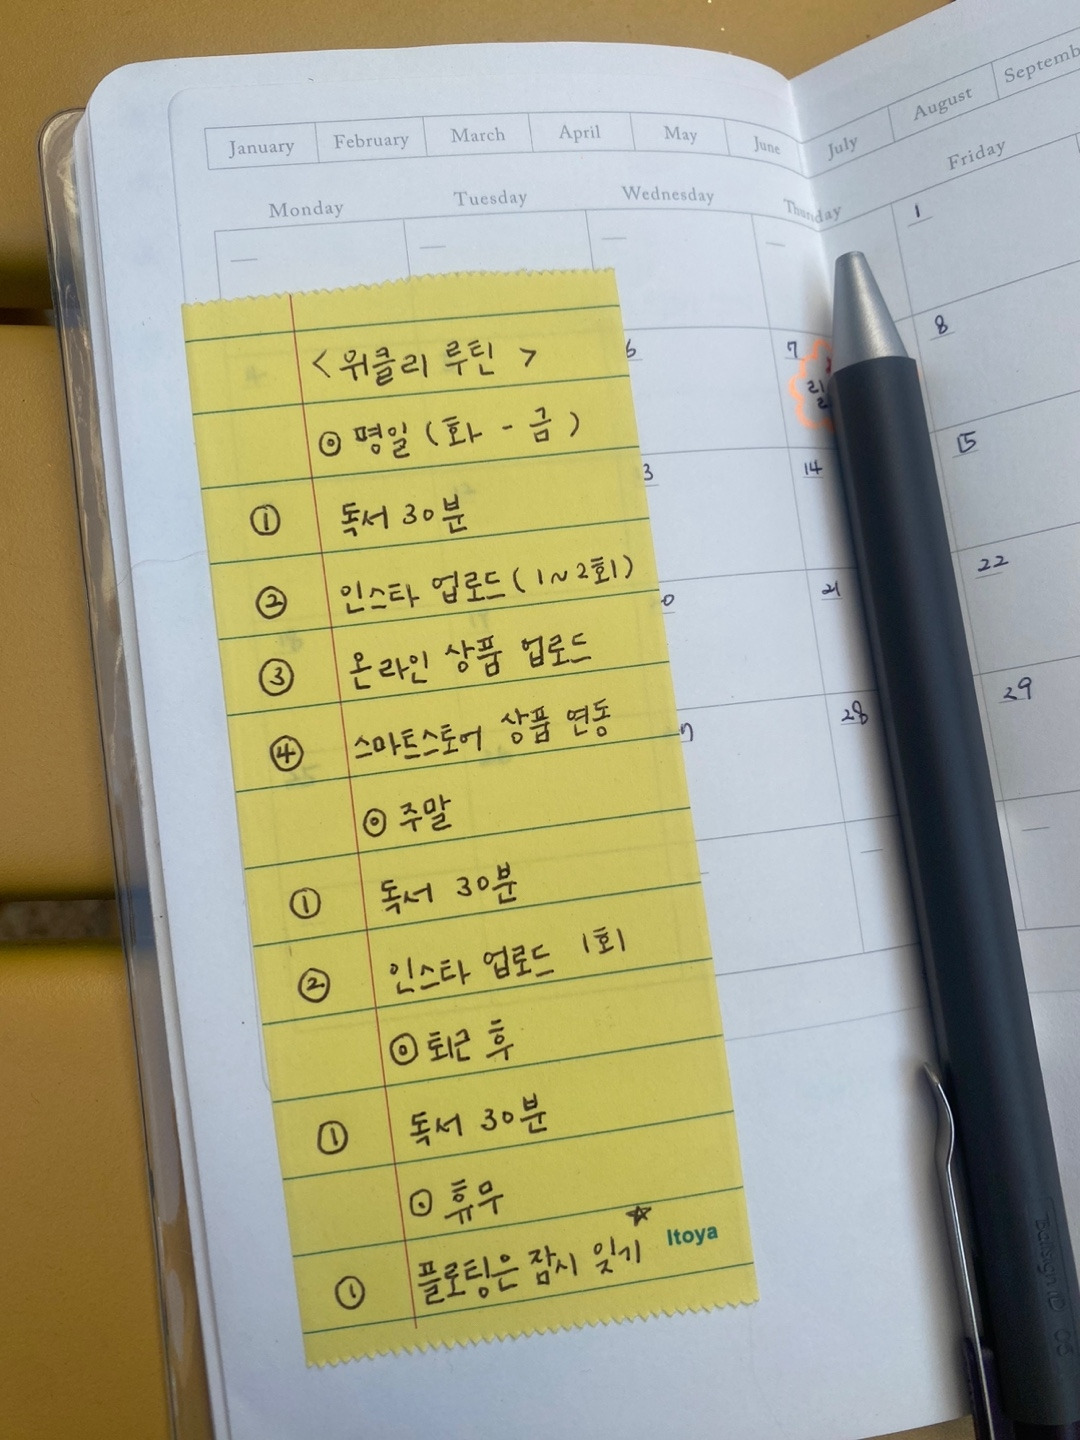 January February March April May June July August Septemb
Monday Tuesday Wednesday Thursday Friday
1
6 7 8
3 14 15
0 21 22
28 29
< 위클리 루틴 >
⊙ 명일 (화 - 금)
① 독서 30분
② 인스타 업로드 (1~2회)
③ 온라인 상품 업로드
④ 스마트스토어 상품 연동
⊙ 주말
① 독서 30분
② 인스타 업로드 1회
⊙ 퇴근 후
① 독서 30분
⊙ 휴무
① 플로팅은 잠시 잊기 ☆
Itoya